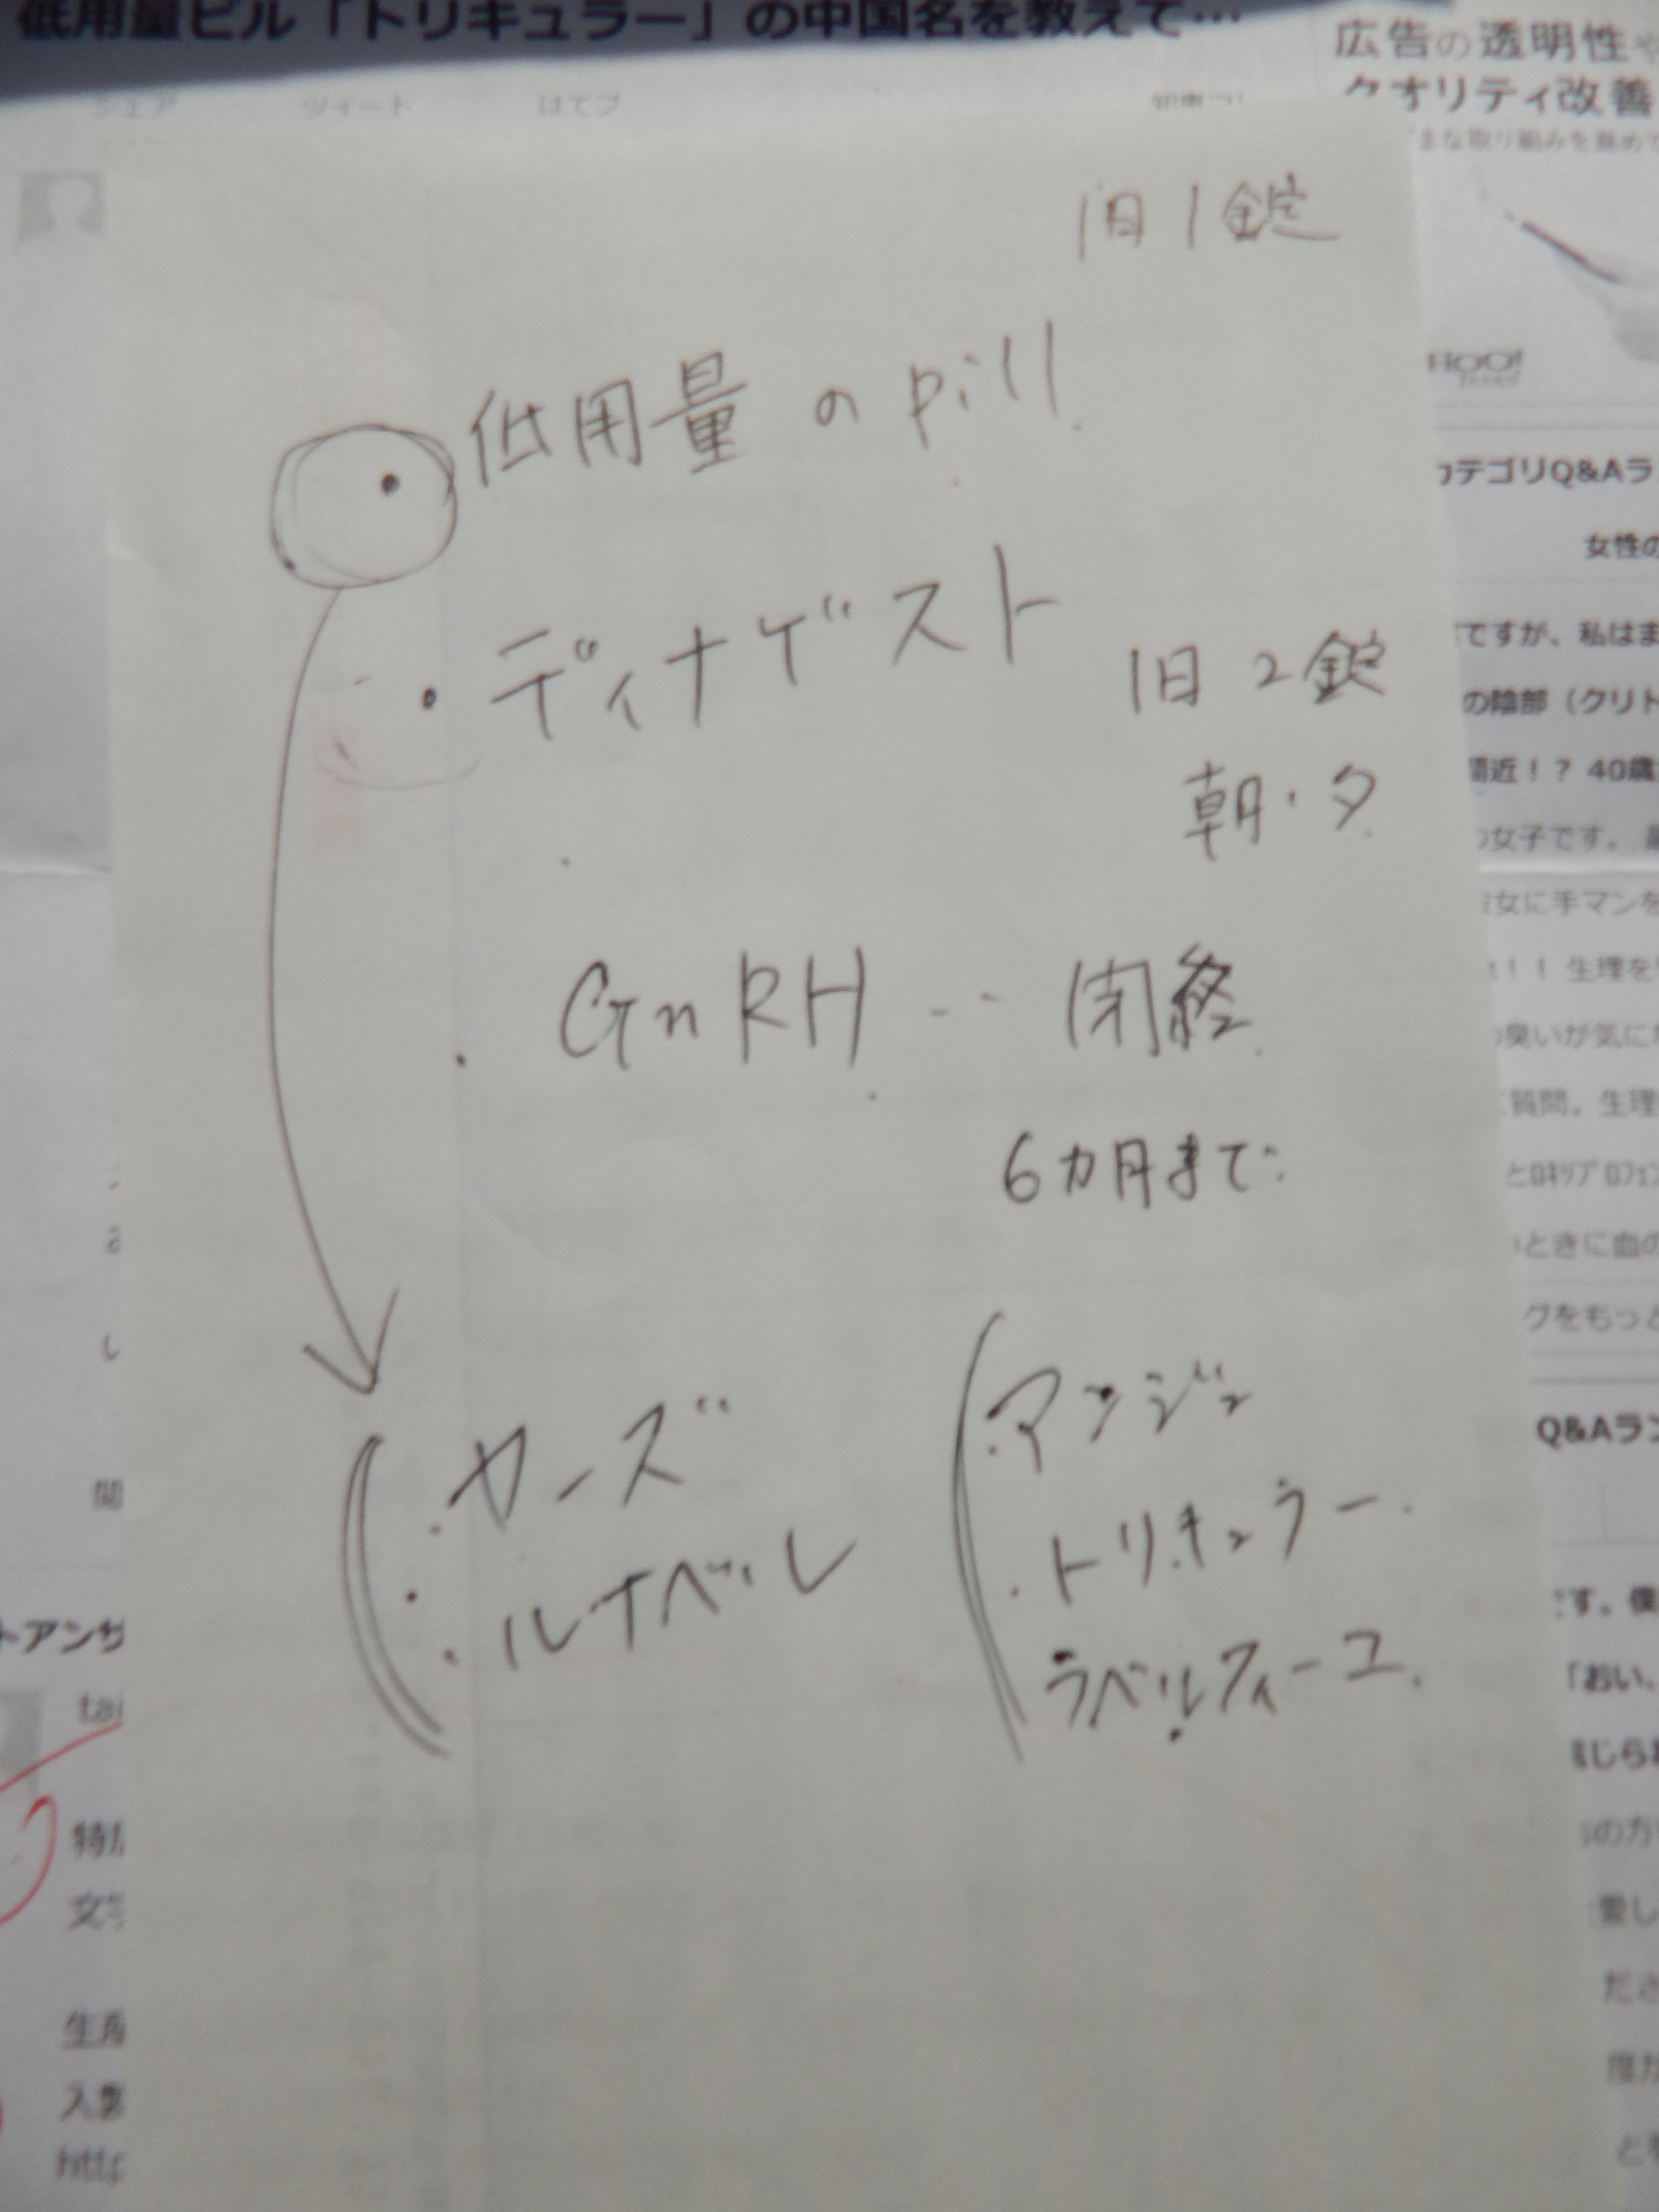 低用量ピル「トリキュラー」の中国名を教えて…
シェア ツイート はてブ
広告の透明性や
クオリティ改善
まな取り組みを進めて
1日1錠
低用量のpill
・ディナゲスト
1日2錠
朝・夕
・GnRH‥閉経
6カ月まで
・ヤーズ
・ルナベル
・アンジュ
・トリキュラー
ラベルフィーユ
カテゴリQ&Aラ
女性の
ですが、私はま
の陰部（クリト
間近！？ 40歳
の女子です。
女に手マンを
！！ 生理を
臭いが気に
質問。生理
ときに血の
グをもっと
Q&Aラン
す。僕
「おい、
じられ
の方
愛し
ださ
トアンサ
tai
特
文
生産
入
http